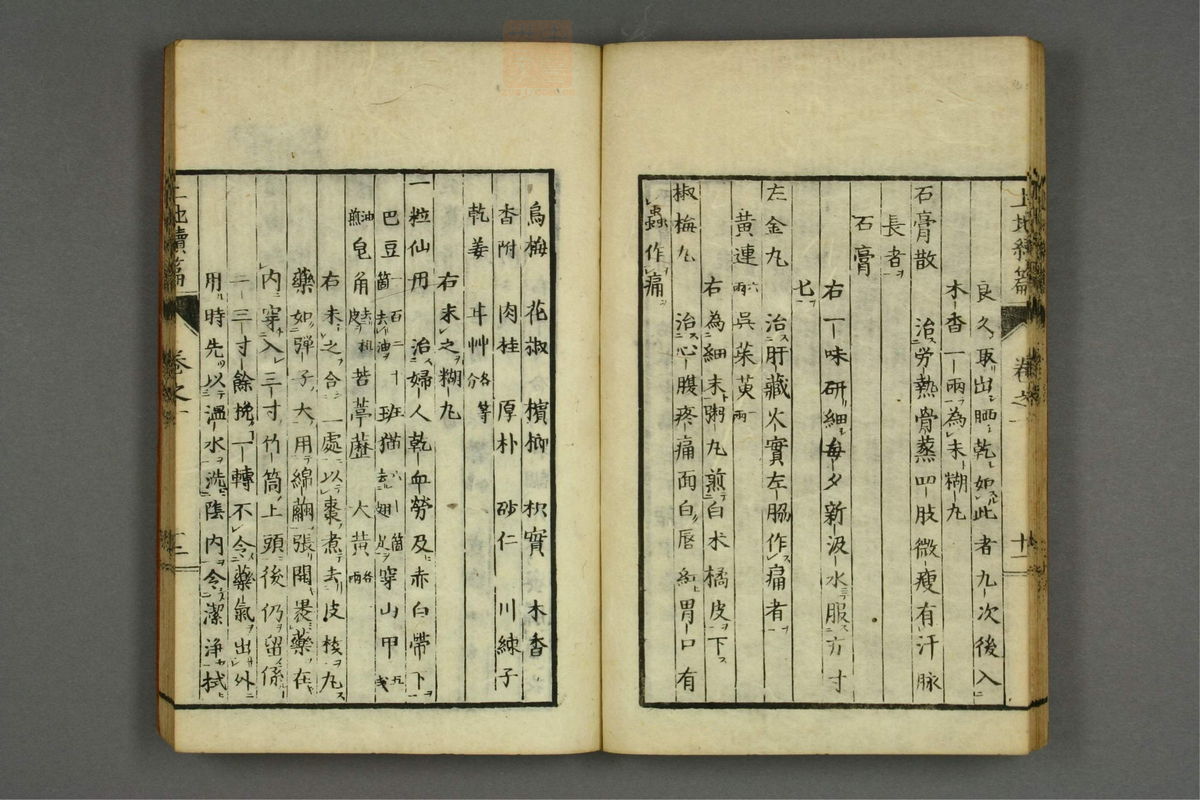 良久取出晒乾如此者九次後入
木香一兩為末糊丸
石膏散　治労熱骨蒸四肢微瘦有汗脉
長者
石膏
右一味研細毎夕新汲水服方寸
七
左金丸　治肝藏火實左脇作痛者
黄連六兩　呉茱萸一兩
右為細末粥丸煎白朮橘皮下
椒梅丸　治心腹疼痛面白唇紅胃口有
蟲作痛
上池續篇　卷之一　十二
烏梅　花椒　檳榔　枳實　木香
香附　肉桂　厚朴　砂仁　川練子
乾姜　甘艸各等分
右末之糊丸
一粒仙丹　治婦人乾血勞及赤白帶下
巴豆一百二十箇去油　班猫六箇去翅足　穿山甲五戔
油煎　皂角去粗皮　苦葶藶　大黄各兩
右末之合一處以棗煮去皮核丸
藥如彈子大用綿繭張開裹藥在
内穿入三寸竹筒上頭後仍留係
二三寸餘挽一轉不令藥氣出外
用時先以温水洗陰内令潔浄拭
上池續篇　卷之一